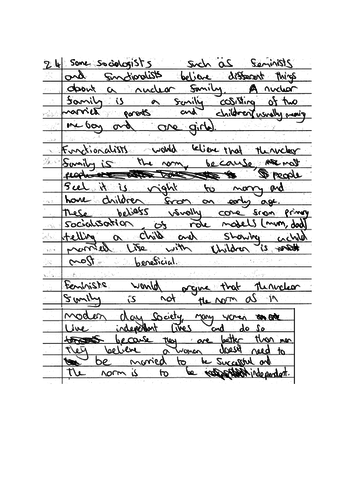 24 some sociologists such as feminists
and functionalists believe different things
about a nuclear family. A nuclear
family is a family cosisting of two
married parents and children, usually
one boy and one girl.
Functionalists would believe that the nuclear
family is the norm, because, most
people
feel it is right to marry and
have children from an early age.
These beliefs usually come from primary
socialisation of role models (mum, dad)
telling a child and showing a child
married life with children is
most beneficial.
Feminists would argue that the nuclear
family is not the norm as in
modern day society, many women
live independent lives and do so
because they are better than men
They believe a women doesnt need to
be married to be successful and
the norm is to be independent.